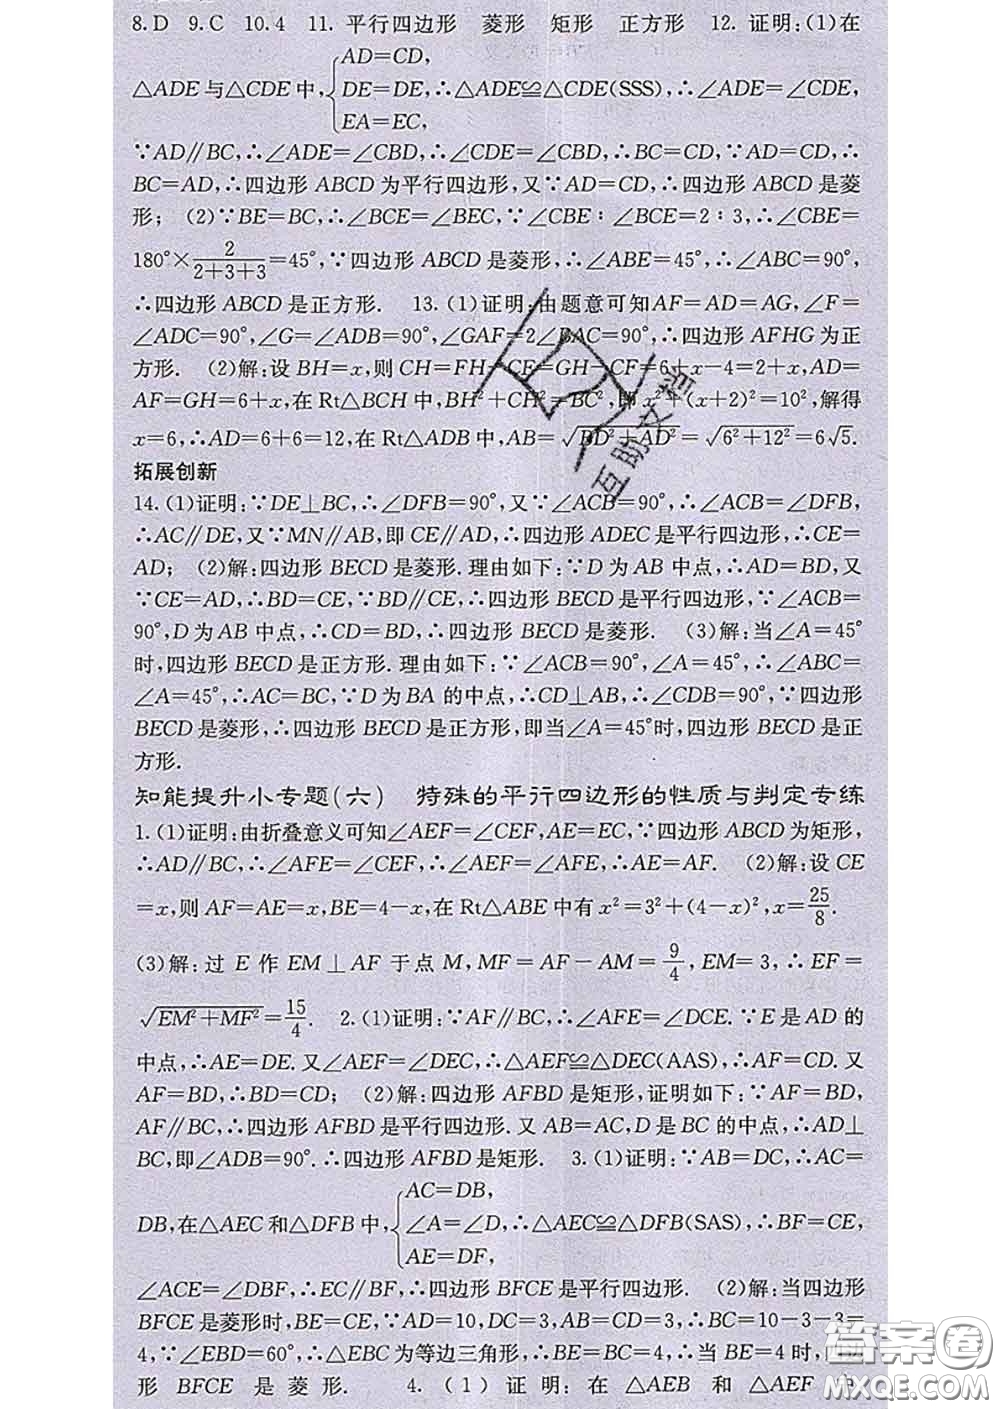 8.D 9.C 10.4 11. 平行四边形 菱形 矩形 正方形 12. 证明:(1)在
AD=CD,
△ADE与△CDE中,{DE=DE,∴△ADE≌△CDE(SSS),∴∠ADE=∠CDE,
EA=EC,
∵AD∥BC,∴∠ADE=∠CBD,∴∠CDE=∠CBD,∴BC=CD,∵AD=CD,∴
BC=AD,∴四边形 ABCD 为平行四边形,又∵AD=CD,∴四边形 ABCD 是菱
形; (2)∵BE=BC,∴∠BCE=∠BEC,∵∠CBE∶∠BCE=2∶3,∴∠CBE=
180°×2/(2+3+3)=45°,∵四边形 ABCD 是菱形,∴∠ABE=45°,∴∠ABC=90°,
∴四边形 ABCD 是正方形. 13. (1)证明:由题意可知AF=AD=AG,∠F=
∠ADC=90°,∠G=∠ADB=90°,∠GAF=2∠BAC=90°,∴四边形 AFHG 为正
方形. (2)解:设 BH=x,则 CH=FH-CF=GH-CF=6+x-4=2+x,AD=
AF=GH=6+x,在 Rt△BCH 中,BH²+CH²=BC²,即 x²+(x+2)²=10²,解得
x=6,∴AD=6+6=12,在 Rt△ADB 中,AB=√(BD²+AD²)=√(6²+12²)=6√5.
拓展创新
14. (1)证明:∵DE⊥BC,∴∠DFB=90°,又∵∠ACB=90°,∴∠ACB=∠DFB,
∴AC∥DE,又∵MN∥AB,即 CE∥AD,∴四边形 ADEC 是平行四边形,∴CE=
AD; (2)解:四边形 BECD 是菱形.理由如下:∵D 为 AB 中点,∴AD=BD,又
∵CE=AD,∴BD=CE,∵BD∥CE,∴四边形 BECD 是平行四边形,∵∠ACB=
90°,D 为 AB 中点,∴CD=BD,∴四边形 BECD 是菱形. (3)解:当∠A=45°
时,四边形 BECD 是正方形.理由如下:∵∠ACB=90°,∠A=45°,∴∠ABC=
∠A=45°,∴AC=BC,∵D 为 BA 的中点,∴CD⊥AB,∴∠CDB=90°,∵四边形
BECD 是菱形,∴四边形 BECD 是正方形,即当∠A=45°时,四边形 BECD 是正
方形.
知能提升小专题(六) 特殊的平行四边形的性质与判定专练
1. (1)证明:由折叠意义可知∠AEF=∠CEF,AE=EC,∵四边形 ABCD 为矩形,
∴AD∥BC,∴∠AFE=∠CEF,∴∠AEF=∠AFE,∴AE=AF. (2)解:设 CE
=x,则 AF=AE=x,BE=4-x,在 Rt△ABE 中有 x²=3²+(4-x)²,x=25/8.
(3)解:过 E 作 EM⊥AF 于点 M,MF=AF-AM=9/4,EM=3,∴EF=
√(EM²+MF²)=15/4. 2. (1)证明:∵AF∥BC,∴∠AFE=∠DCE.∵E 是 AD 的
中点,∴AE=DE.又∠AEF=∠DEC,∴△AEF≌△DEC(AAS),∴AF=CD.又
AF=BD,∴BD=CD; (2)解:四边形 AFBD 是矩形,证明如下:∵AF=BD,
AF∥BC,∴四边形 AFBD 是平行四边形.又 AB=AC,D 是 BC 的中点,∴AD⊥
BC,即∠ADB=90°.∴四边形 AFBD 是矩形. 3. (1)证明:∵AB=DC,∴AC=
AC=DB,
DB,在△AEC和△DFB中,{∠A=∠D,∴△AEC≌△DFB(SAS),∴BF=CE,
AE=DF,
∠ACE=∠DBF,∴EC∥BF,∴四边形 BFCE 是平行四边形. (2)解:当四边形
BFCE 是菱形时,BE=CE,∵AD=10,DC=3,AB=CD=3,∴BC=10-3-3=
4,∵∠EBD=60°,∴△EBC 为等边三角形,∴BE=BC=4,∴当 BE=4 时,四边
形 BFCE 是菱形. 4. (1)证明:在 △AEB 和 △AEF 中
互助文档
答案圈
MXQE.COM